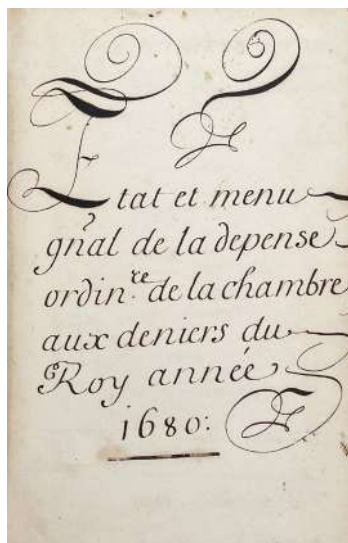 Etat et menu
gñal de la depense
ordin.re de la chambre
aux deniers du
Roy année
1680: